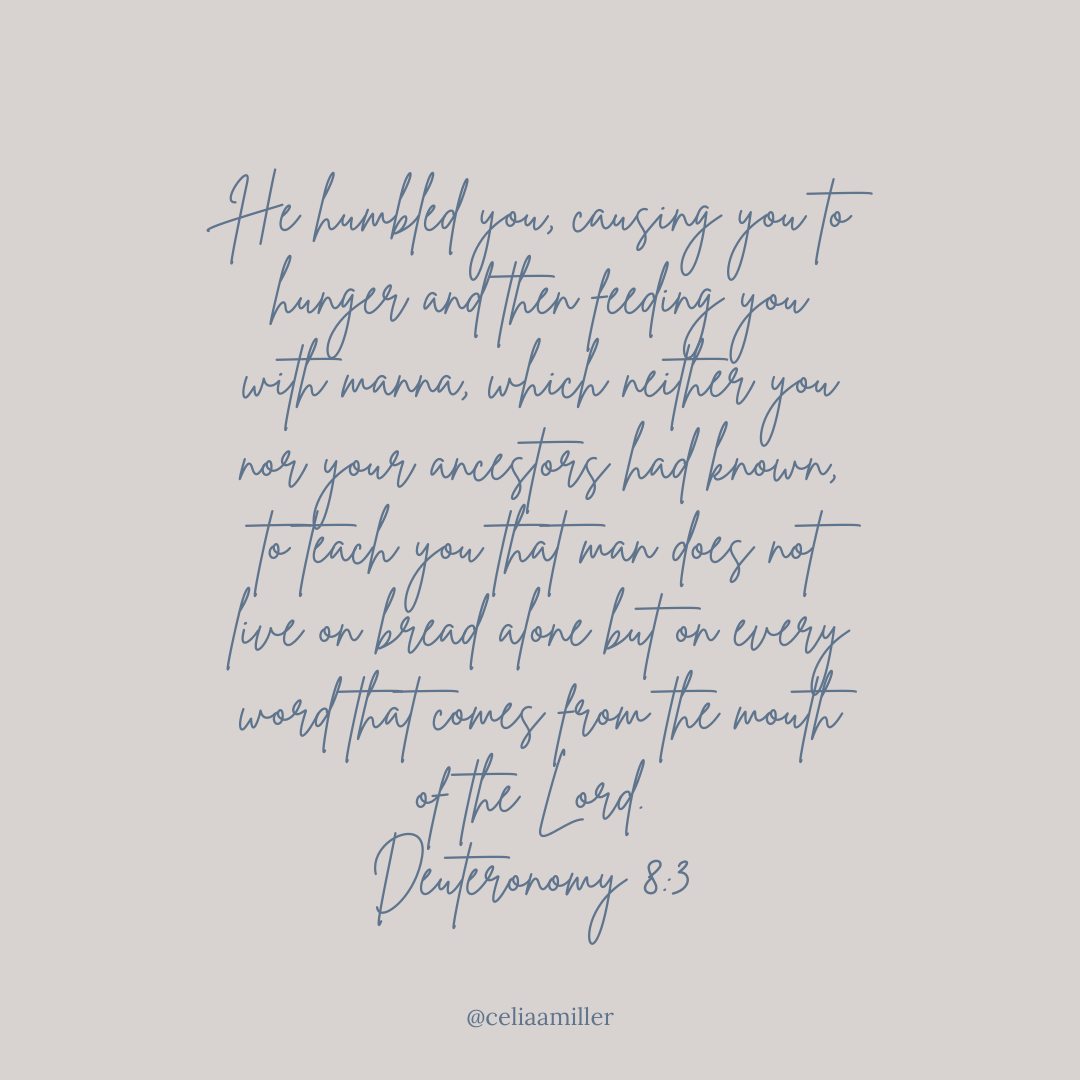 He humbled you, causing you to
hunger and then feeding you
with manna, which neither you
nor your ancestors had known,
to teach you that man does not
live on bread alone but on every
word that comes from the mouth
of the Lord.
Deuteronomy 8:3
@celiaamiller